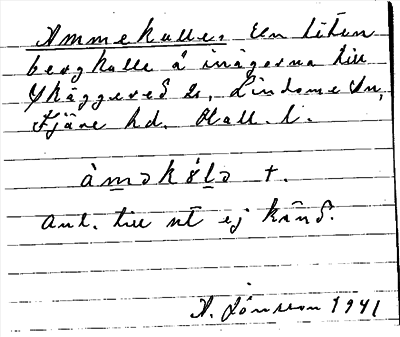 Ammekulle. En liten
bergkulle å inägorna till
Skäggered 2, Lindome sn,
Fjäre hd. Hall. l.
àməkɤ́lə +.
Anl. till nt ej känd.
A. Jönsson 1941